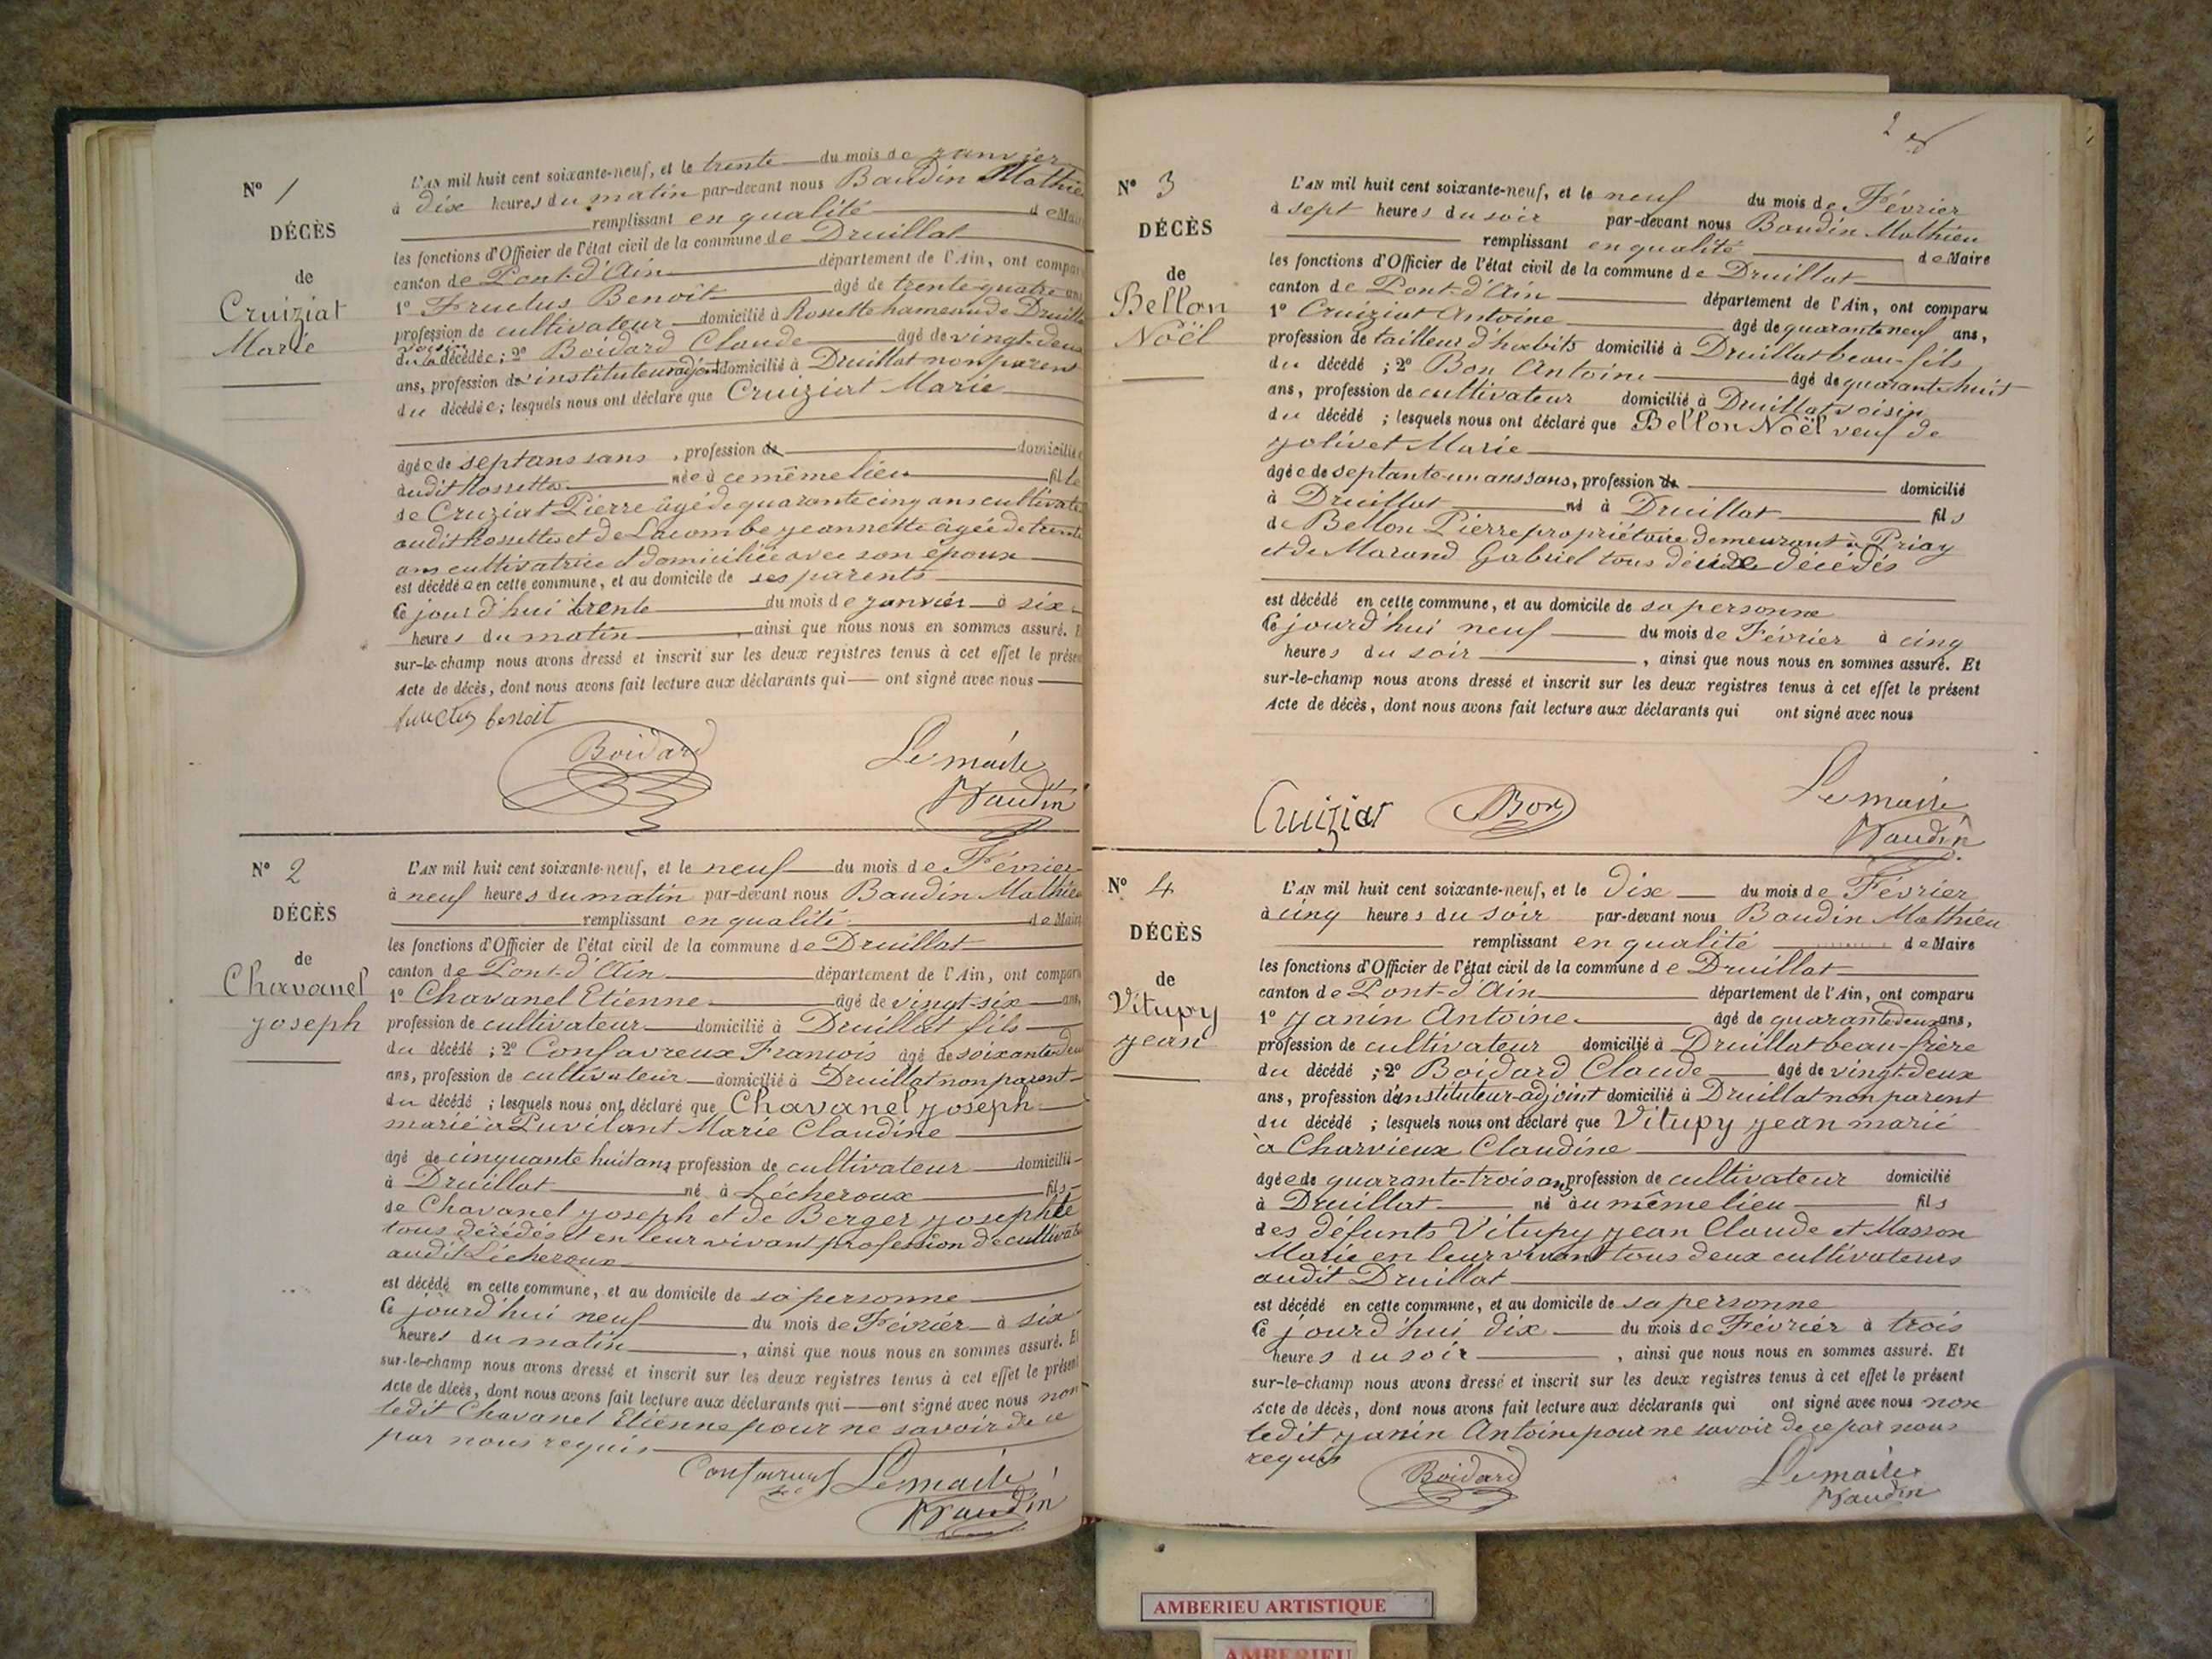 N° 1
DÉCÈS
de
Cruiziat
Marie
L'AN mil huit cent soixante-neuf, et le trente du mois de janvier
à dix heures du matin par-devant nous Baudin Mathieu
remplissant en qualité de Maire
les fonctions d'Officier de l'état civil de la commune de Druillat
canton de Pont-d'Ain département de l'Ain, ont comparu
1° Fructus Benoît âgé de trente-quatre ans
profession de cultivateur domicilié à Rossette hameau de Druillat
voisin
du la décédée; 2° Boidard Claude âgé de vingt-deux
ans, profession d'instituteur adjoint domicilié à Druillat non parent
du décédée; lesquels nous ont déclaré que Cruiziat Marie
âgée de sept ans sans, profession de domiciliée
audit Rossette née à ce même lieu fille
de Cruziat Pierre âgé de quarante cinq ans cultivateur
audit Rossette et de Lacombe jeannette âgée de trente
ans cultivatrice et domiciliée avec son époux
est décédée en cette commune, et au domicile de ses parents
Ce jourd'hui trente du mois de janvier à six
heures du matin, ainsi que nous nous en sommes assuré. Et
sur-le-champ nous avons dressé et inscrit sur les deux registres tenus à cet effet le présent
Acte de décès, dont nous avons fait lecture aux déclarants qui ont signé avec nous
fructus benoit
Boidard
Le maire
Baudin
N° 2
DÉCÈS
de
Chavanel
joseph
L'AN mil huit cent soixante-neuf, et le neuf du mois de Février
à neuf heures du matin par-devant nous Baudin Mathieu
remplissant en qualité de Maire
les fonctions d'Officier de l'état civil de la commune de Druillat
canton de Pont-d'Ain département de l'Ain, ont comparu
1° Chavanel Etienne âgé de vingt-six ans,
profession de cultivateur domicilié à Druillat fils
du décédé; 2° Confavreux Francois âgé de soixante deux
ans, profession de cultivateur domicilié à Druillat non parent
du décédé; lesquels nous ont déclaré que Chavanel joseph
marié à Puvilant Marie Claudine
âgé de cinquante huit ans profession de cultivateur domicilié
à Druillat né à Lécheroux fils
de Chavanel joseph et de Berger josephte
tous décédés et en leur vivant profession de cultivateur
audit Lécheroux
est décédé en cette commune, et au domicile de sa personne
Ce jourd'hui neuf du mois de Février à six
heures du matin, ainsi que nous nous en sommes assuré. Et
sur-le-champ nous avons dressé et inscrit sur les deux registres tenus à cet effet le présent
Acte de décès, dont nous avons fait lecture aux déclarants qui ont signé avec nous non
ledit Chavanel Etienne pour ne savoir de ce
par nous requis
Le maire
Baudin
2
N° 3
DÉCÈS
de
Bellon
Noël
L'AN mil huit cent soixante-neuf, et le neuf du mois de Février
à sept heures du soir par-devant nous Baudin Mathieu
remplissant en qualité de Maire
les fonctions d'Officier de l'état civil de la commune de Druillat
canton de Pont-d'Ain département de l'Ain, ont comparu
1° Cruiziat Antoine âgé de quarante neuf ans,
profession de tailleur d'habits domicilié à Druillat beau-fils
du décédé; 2° Bon Antoine âgé de quarante-huit
ans, profession de cultivateur domicilié à Druillat voisin
du décédé; lesquels nous ont déclaré que Bellon Noël veuf de
jolivet Marie
âgée de septante-un ans sans, profession de domicilié
à Druillat né à Druillat fils
de Bellon Pierre propriétaire demeurant à Priay
et de Marand Gabriel tous deux décédés
est décédé en cette commune, et au domicile de sa personne
Ce jourd'hui neuf du mois de Février à cinq
heures du soir, ainsi que nous nous en sommes assuré. Et
sur-le-champ nous avons dressé et inscrit sur les deux registres tenus à cet effet le présent
Acte de décès, dont nous avons fait lecture aux déclarants qui ont signé avec nous
Cruiziat
Bon
Le maire
Baudin
N° 4
DÉCÈS
de
Vitupy
jean
L'AN mil huit cent soixante-neuf, et le dix du mois de Février
à cinq heures du soir par-devant nous Baudin Mathieu
remplissant en qualité de Maire
les fonctions d'Officier de l'état civil de la commune de Druillat
canton de Pont-d'Ain département de l'Ain, ont comparu
1° janin Antoine âgé de quarante deux ans,
profession de cultivateur domicilié à Druillat beau-frère
du décédé; 2° Boidard Claude âgé de vingt-deux
ans, profession d'instituteur-adjoint domicilié à Druillat non parent
du décédé; lesquels nous ont déclaré que Vitupy jean marié
à Charvieux Claudine
âgée de quarante-trois ans profession de cultivateur domicilié
à Druillat né au même lieu fils
des défunts Vitupy jean Claude et Masson
Marie en leur vivant tous deux cultivateurs
audit Druillat
est décédé en cette commune, et au domicile de sa personne
Ce jourd'hui dix du mois de Février à trois
heures du soir, ainsi que nous nous en sommes assuré. Et
sur-le-champ nous avons dressé et inscrit sur les deux registres tenus à cet effet le présent
Acte de décès, dont nous avons fait lecture aux déclarants qui ont signé avec nous non
ledit janin Antoine pour ne savoir de ce par nous
requis
Boidard
Le maire
Baudin
AMBERIEU ARTISTIQUE
AMBERIEU